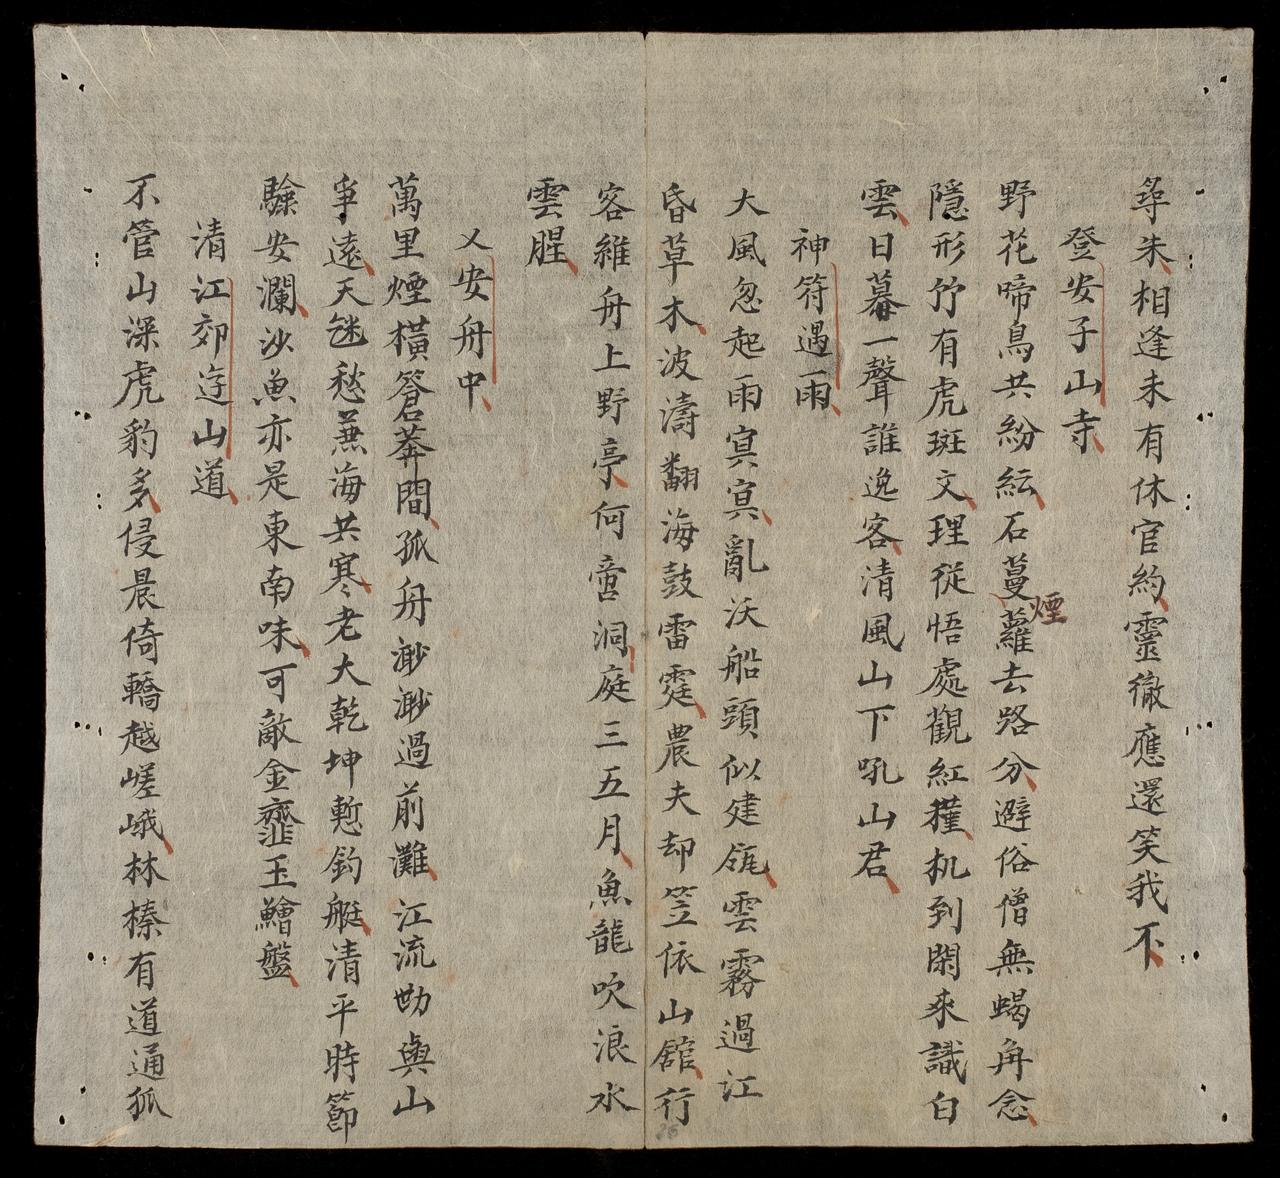 尋朱相逢未有休官約靈徹應還笑我不
登安子山寺
野花啼鳥共紛紜石蔓蘿去路分避俗僧無蝎舟念
煙
隱形竹有虎斑文理從悟處觀紅槿机到閑來識白
雲日暮一聲誰逸客清風山下吼山君
神符遇雨
大風忽起雨寞寞亂沃船頭似建瓴雲霧過江
昏草木波濤翻海鼓雷霆農夫却笠依山舘行
客維舟上野亭何啻洞庭三五月魚龍吹浪水
雲腥
乂安舟中
萬里煙橫蒼莽間孤舟渺渺過前灘江流丗與山
爭遠天迷愁兼海共寒老大乾坤慙釣艇清平時節
驗安瀾沙魚亦是東南味可敵金虀玉鱠盤
清江郊迳山道
不管山深虎豹多侵晨倚轎越嵯峨林榛有道通狐